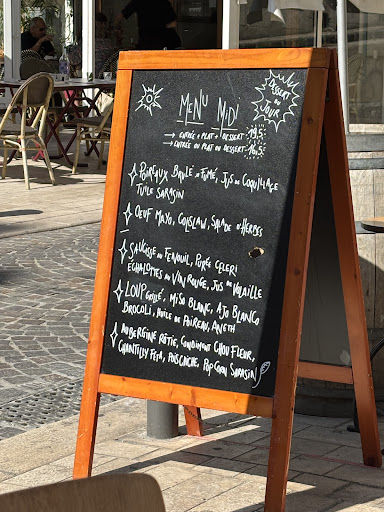 MENU MIDI
DESSERT
DU
JOUR
→ ENTRÉE + PLAT + DESSERT 19,5
→ ENTRÉE OU PLAT OU DESSERT 16,5
POIREAUX BRULÉ FUMÉ, JUS DE COQUILLAGE
TUILE SARASIN
OEUF MAYO, COLSLAW, SALADE D'HERBES
SAUCISSE AU FENOUIL, PURÉE CÉLERI
ECHALOTTES AU VIN ROUGE, JUS DE VOLAILLE
LOUP GRILLÉ, MISO BLANC, AJO BLANCO
BROCOLI, HUILE DE POIREAU, ANETH
AUBERGINE RÔTIE, CONDIMENT CHOU FLEUR,
CHANTILLY FETA, POIS CHICHE, POP CORN SARASIN